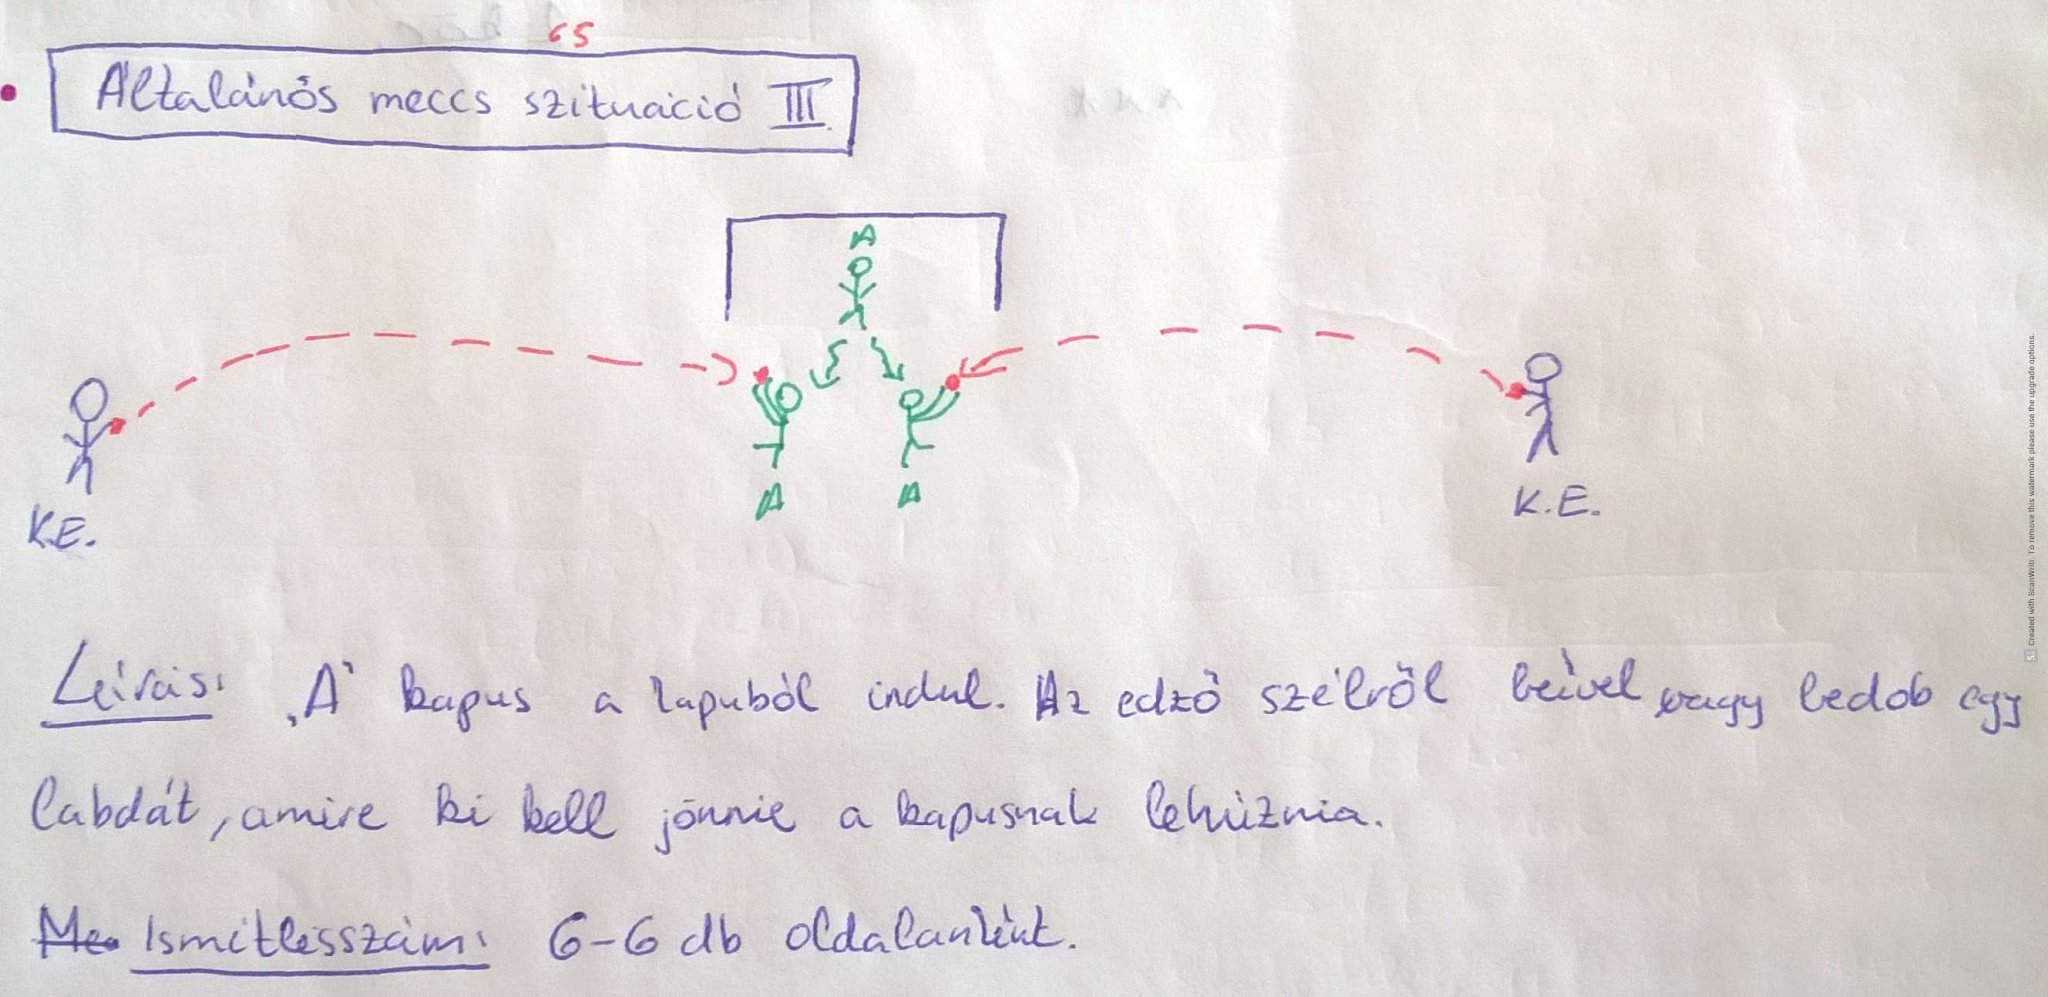 65
Általánós meccs szituáció III.
A
A
A
K.E.
K.E.
Leírás: „A" kapus a kapuból indul. Az edző szélről beível vagy bedob egy
labdát, amire ki kell jönnie a kapusnak lehúznia.
Me Ismétlésszám: 6-6 db oldalanként.
Created with ScanWritr. To remove this watermark please use the upgrade options.